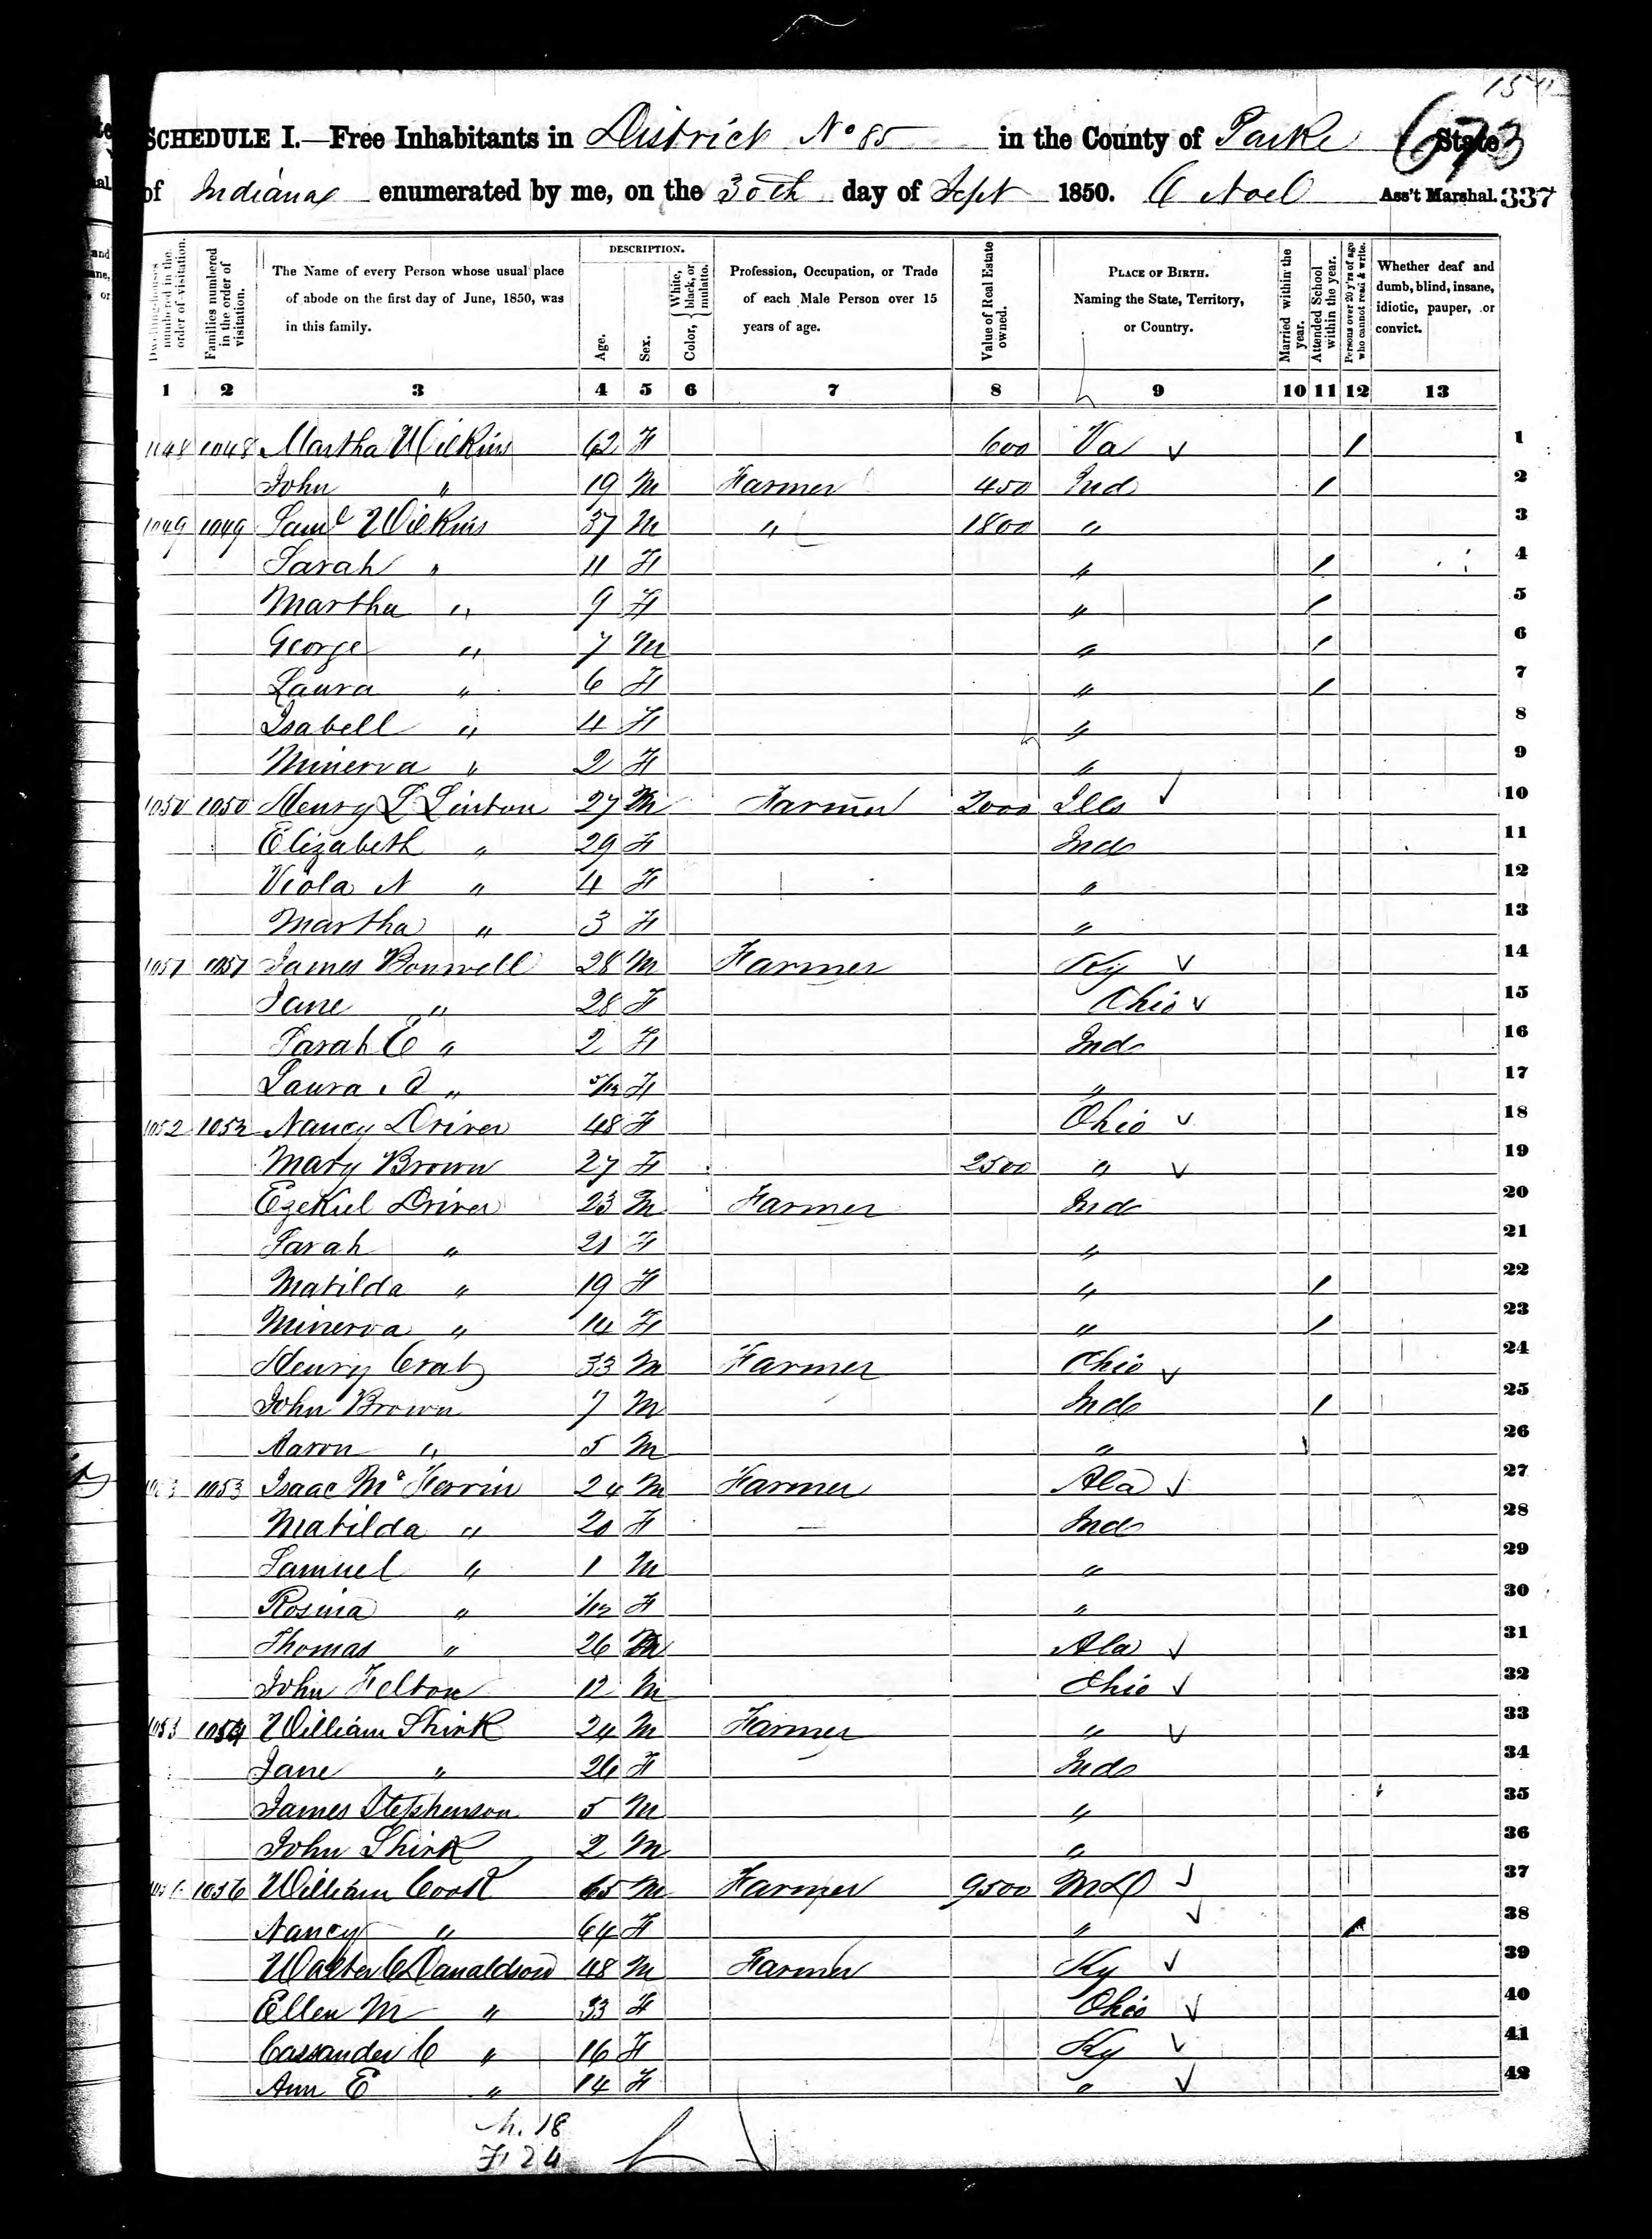 673
SCHEDULE I.—Free Inhabitants in District No 85 in the County of Parke State
of Indiana enumerated by me, on the 30th day of Sept 1850. C Noel Ass't Marshal. 337
Dwelling-houses numbered in the order of visitation.
Families numbered in the order of visitation.
The Name of every Person whose usual place of abode on the first day of June, 1850, was in this family.
DESCRIPTION.
Age.
Sex.
Color, { White, black, or mulatto.
Profession, Occupation, or Trade of each Male Person over 15 years of age.
Value of Real Estate owned.
PLACE OF BIRTH. Naming the State, Territory, or Country.
Married within the year.
Attended School within the year.
Persons over 20 y'rs of age who cannot read & write.
Whether deaf and dumb, blind, insane, idiotic, pauper, or convict.
1 2 3 4 5 6 7 8 9 10 11 12 13
1048 Martha Wilkins 62 F 600 Va / 1
John " 19 M Farmer 450 Ind / 2
1049 1049 Saml Wilkins 37 M " 1800 " 3
Sarah " 11 F " / 4
Martha " 9 F " / 5
George " 7 M " / 6
Laura " 6 F " / 7
Isabell " 4 F " 8
Minerva " 2 F " 9
1050 1050 Henry L Linton 27 M Farmer 2000 Ills 10
Elizabeth " 29 F Ind 11
Viola N " 4 F " 12
Martha " 3 F " 13
1051 1051 James Bonwell 28 M Farmer Ky 14
Jane " 28 F Ohio 15
Sarah E " 2 F Ind 16
Laura A " 5/12 F " 17
1052 1052 Nancy Driver 48 F Ohio 18
Mary Brown 27 F 2500 " 19
Ezekiel Driver 23 M Farmer Ind 20
Sarah " 21 F " 21
Matilda " 19 F " / 22
Minerva " 14 F " / 23
Henry Crab 33 M Farmer Ohio 24
John Brown 7 M Ind / 25
Aaron " 5 M " 26
1053 Isaac Mc Ferrin 24 M Farmer Ala 27
Matilda " 20 F Ind 28
Samuel " 1 M " 29
Rosina " 1/12 F " 30
Thomas " 26 M Ala 31
John Felton 12 M Ohio 32
1053 1054 William Shirk 24 M Farmer " 33
Jane " 26 F Ind 34
James Stephenson 5 M " 35
John Shirk 2 M " 36
1056 William Cook 65 M Farmer 9500 MD 37
Nancy " 64 F " / 38
Walter C Danaldson 48 M Farmer Ky 39
Ellen M " 33 F Ohio 40
Cassander C " 16 F Ky 41
Ann E " 14 F " 42
M. 18
F 24